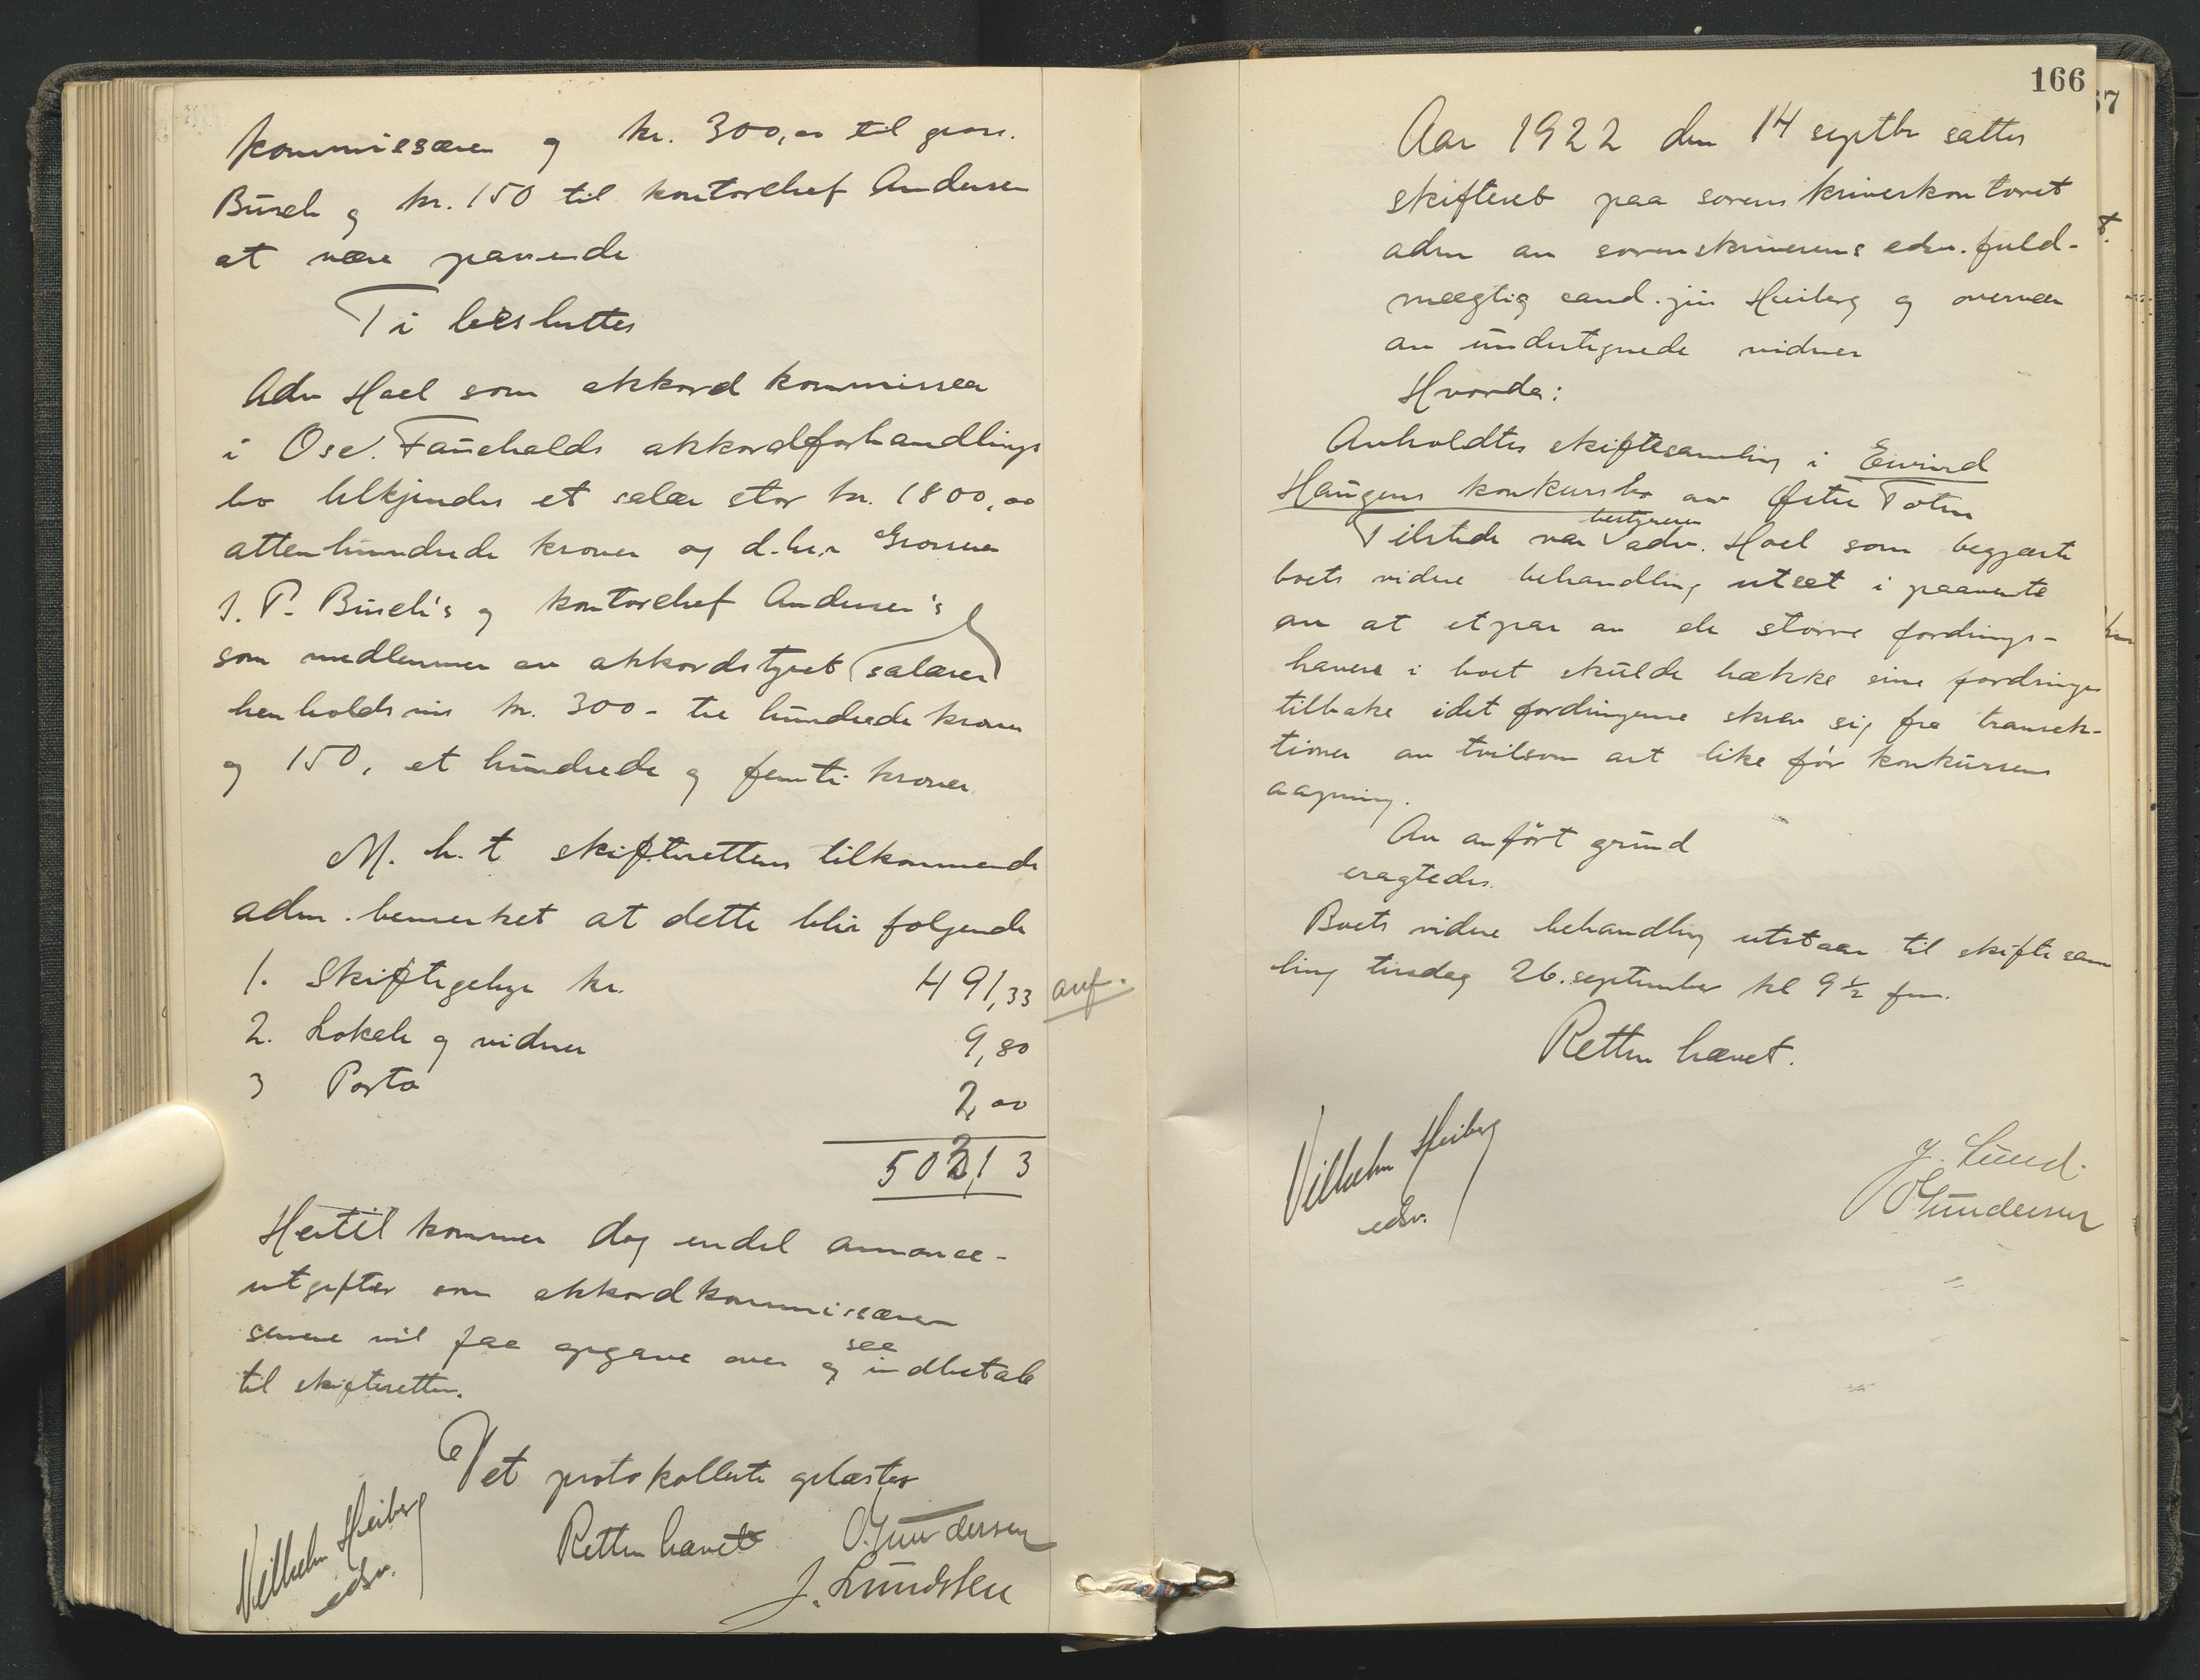 kommissæren og kr. 300,00 til gros.
Busch og kr. 150 til kontorchef Andersen
at være passende
Ti besluttes
Adv Hoel som akkordkommissær
i Osc. Faucholds akkordforhandlings
bo tilkjendes et salær stor kr. 1800,00
attenhundrede kroner og d.hr.r Grosserer
J. P. Busch's og kontorchef Andersen's
som medlemmer av akkordstyret salærer
henholdsvis kr. 300 - tre hundrede kroner
og 150, et hundrede og femti kroner
M. h. t skifterettens tilkommende
adm. bemerket at dette blir følgende
1. Skiftegebyr kr. 491,33 anf.
2. Lokale og vidner 9,80
3 Porto 2,00
503,13
Hertil kommer dog endel annonce-
utgifter som akkordkommissæren
senere vil faa opgave over og saa indbetale
til skifteretten.
Det protokollerte oplæstes
Retten hævet
Vilhelm Heiberg
edsv.
O. Gundersen
J. Lundsten
166
67
Aar 1922 den 14 septbr sattes
skifteret paa sorenskriverkontoret
adm av sorenskriverens edsv. fuld-
mægtig cand. jur Heiberg og overvær
av undertegnede vidner
Hvorda:
Anholdtes skiftesamling i Eivind
Haugens konkursbo av Østre Toten
Tilstede var bestyreren adv. Hoel som begjærte
boets videre behandling utsat i paavente
av at et par av de større fordrings-
havere i boet skulde trække sine fordringer
tilbake idet fordringerne skrev sig fra transak-
tioner av tvilsom art like før konkursens
aapning.
Av anført grund
eragtedes.
Boets videre behandling utstaar til skiftesam
ling tirsdag 26. september kl 9 ½ fm.
Retten hævet.
Vilhelm Heiberg
edsv.
J. Lund.
O Gundersen